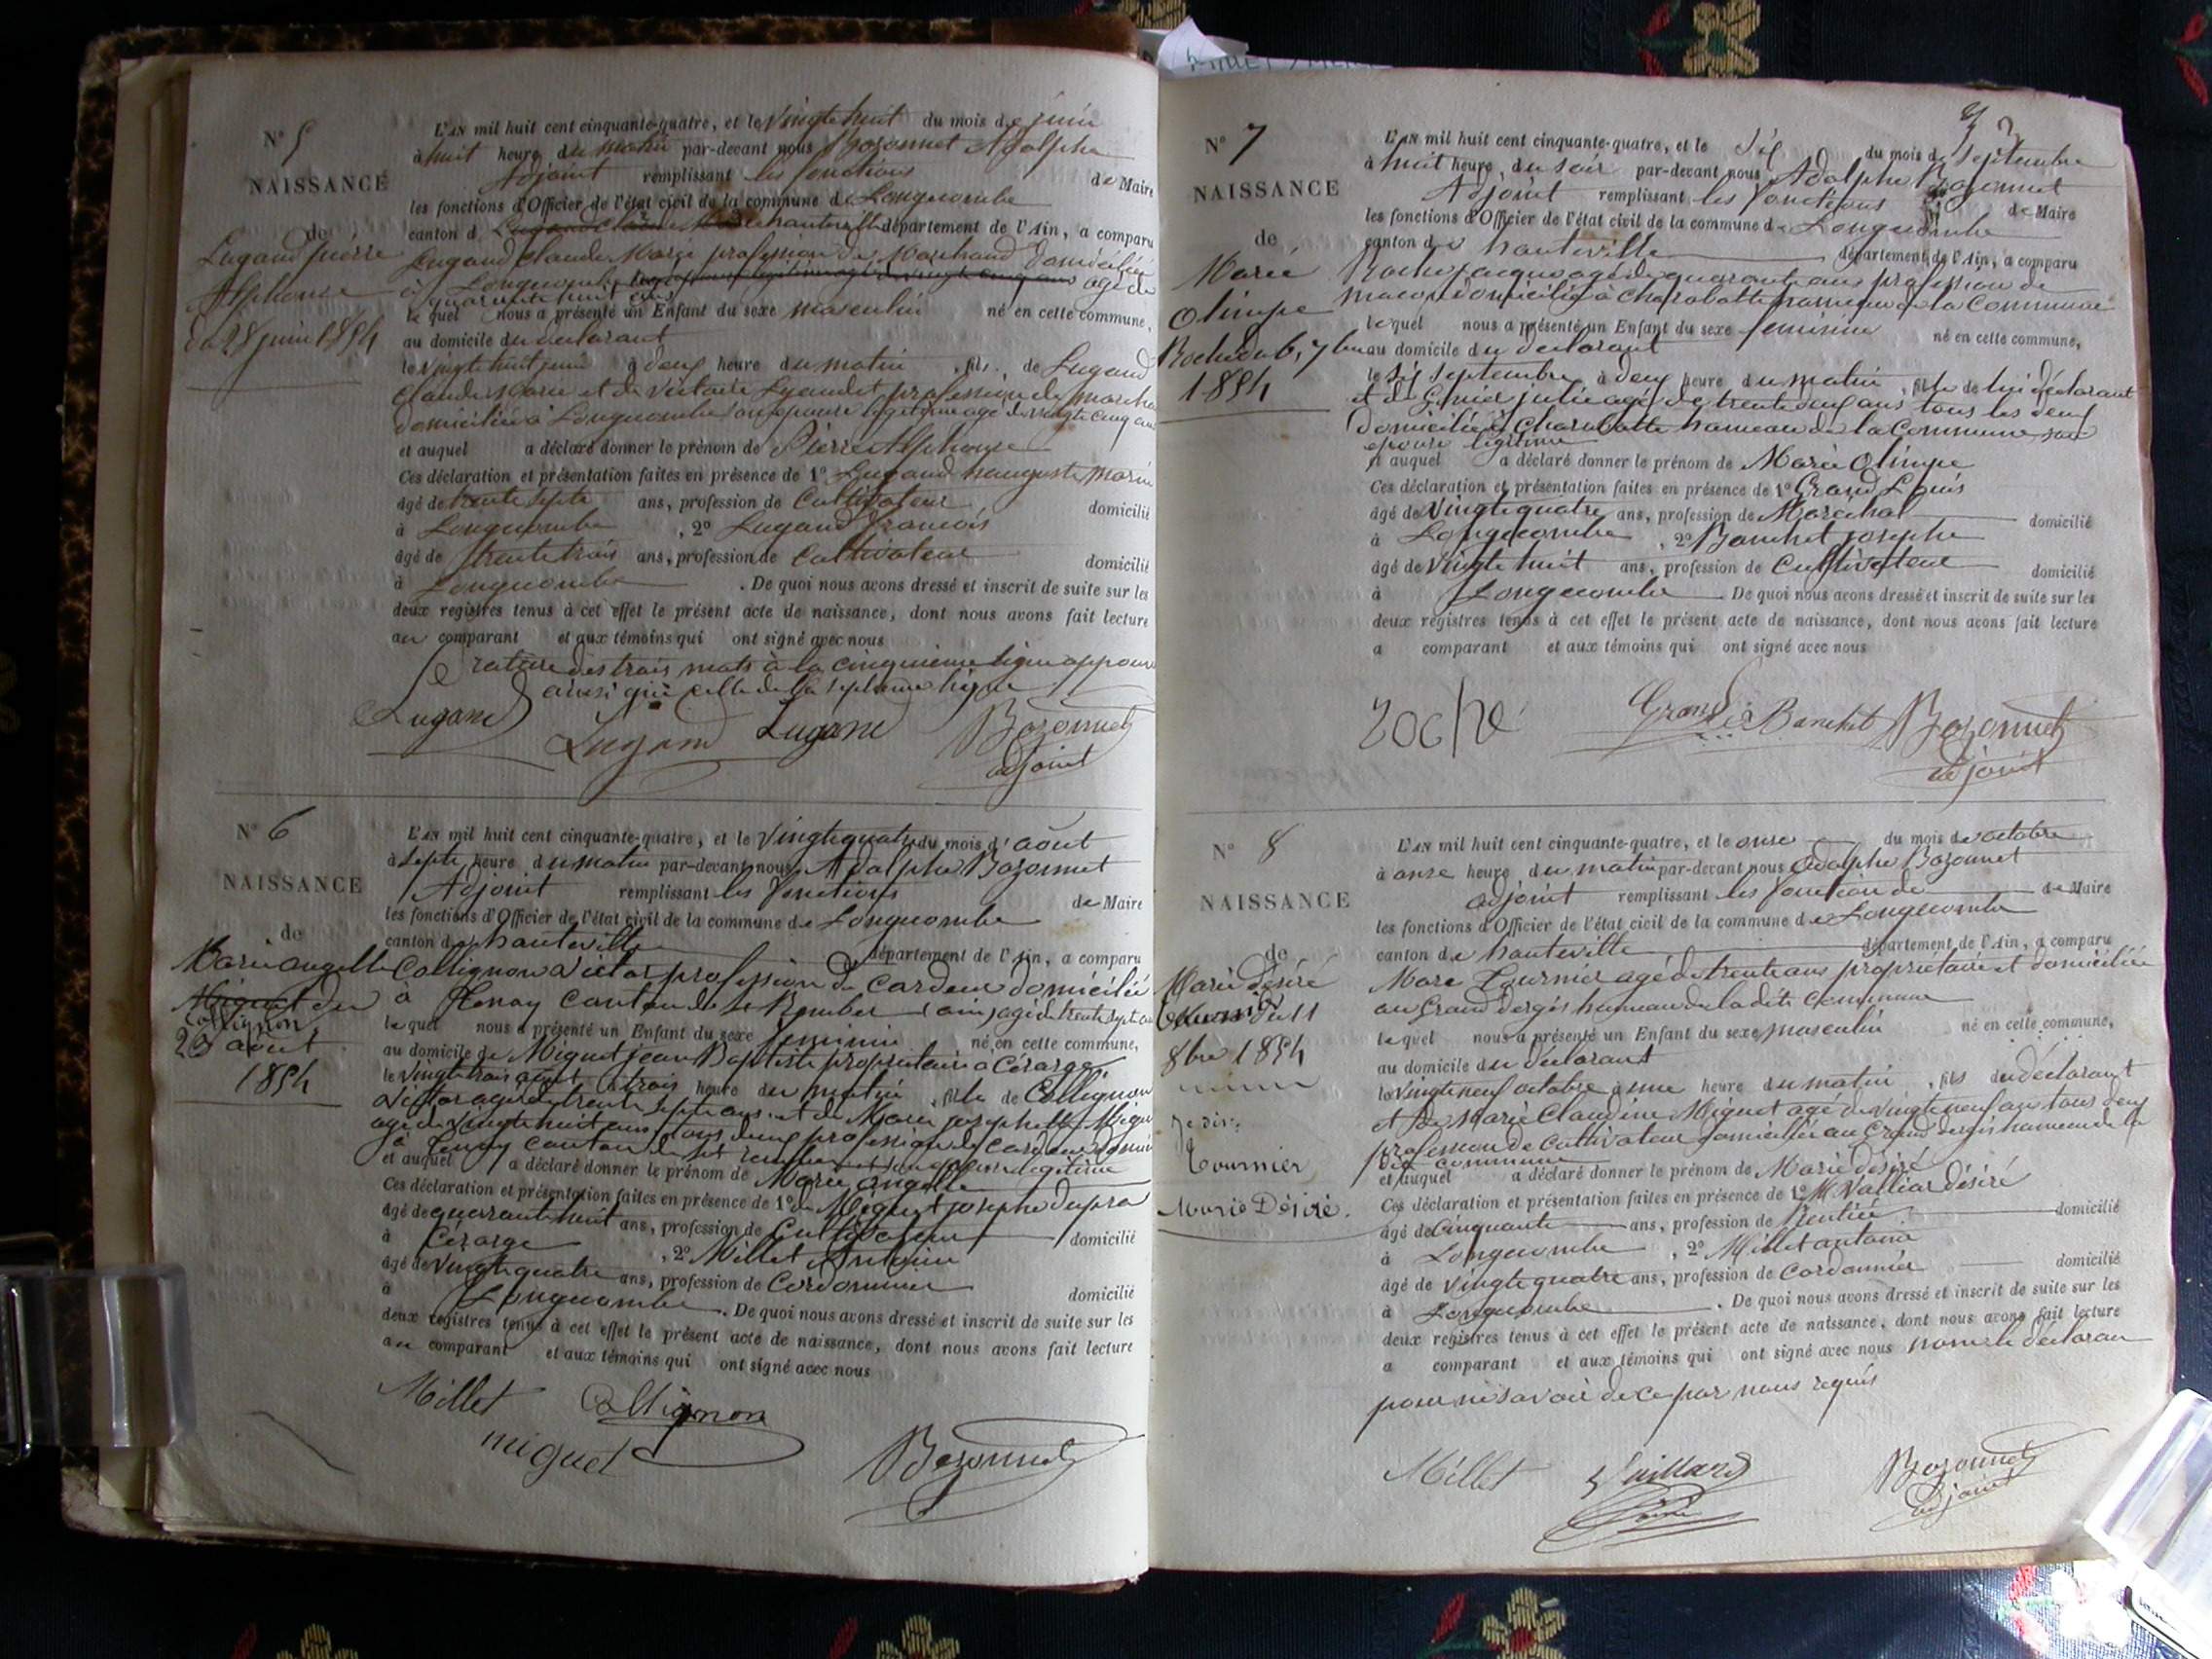 N° 5
NAISSANCE
de
Lugand pierre
Alphonse
du 28 juin 1854
L'AN mil huit cent cinquante-quatre, et le Vingt huit du mois de juin
à huit heure du matin par-devant nous Bozonnet Adolphe
Adjoint remplissant les fonctions de Maire
les fonctions d'Officier de l'état civil de la commune de Longecombe
canton d hauteville département de l'Ain, a comparu
Lugand Claude Marie profession de Marchand domicilié
à Longecombe agé de
quarante huit ans
le quel nous a présenté un Enfant du sexe masculin né en cette commune,
au domicile du déclarant
le vingt huit juin à deux heure du matin, fils de Lugand
Claude Marie et de Victoire profession de marchand
domiciliée à Longecombe son épouse légitime agé de vingt cinq ans
et auquel a déclaré donner le prénom de Pierre Alphonse
Ces déclaration et présentation faites en présence de 1° Lugand hauguste Marie
âgé de trente septe ans, profession de Cultivateur domicilié
à Longecombe, 2° Lugand francois
âgé de trente trois ans, profession de Cultivateur domicilié
à Longecombe. De quoi nous avons dressé et inscrit de suite sur les
deux registres tenus à cet effet le présent acte de naissance, dont nous avons fait lecture
au comparant et aux témoins qui ont signé avec nous
rature des trois mots à la cinquième ligne
ainsi que celle de la septième ligne
Lugand Lugand Lugand Bozonnet
adjoint
N° 6
NAISSANCE
de
Marie angelle
Miguet du
Collignon
23 août
1854
L'AN mil huit cent cinquante-quatre, et le Vingtequatre du mois d'août
à septe heure du matin par-devant nous Adolphe Bozonnet
Adjoint remplissant les fonctions de Maire
les fonctions d'Officier de l'état civil de la commune de Longecombe
canton de hauteville département de l'Ain, a comparu
Collignon Victor profession de Cardeur domicilié
à Thenay Canton de St Rember (ain) agé de trente sept ans
le quel nous a présenté un Enfant du sexe féminin né en cette commune,
au domicile de Miguet jean Baptiste propriétaire à Cérarge
le vingt trois août à trois heure du matin, fille de Collignon
Victor agé de trente septe ans et de Marie josephette Miguet
agé de vingte huit ans tous deux profession de cardeur domicilié
à Thenay canton de st rember et son épouse légitime
et auquel a déclaré donner le prénom de Marie angelle
Ces déclaration et présentation faites en présence de 1° de Miguet josephe dupra
âgé de quarante huit ans, profession de Cultivateur domicilié
à Cérarge, 2° Millet Antoine
âgé de vingtequatre ans, profession de Cordonnier domicilié
à Longecombe. De quoi nous avons dressé et inscrit de suite sur les
deux registres tenus à cet effet le présent acte de naissance, dont nous avons fait lecture
au comparant et aux témoins qui ont signé avec nous
Millet Collignon
miguet Bozonnet
N° 7
NAISSANCE
de
Marie
Olimpe
Roche du 6, 7bre
1854
L'AN mil huit cent cinquante-quatre, et le Six du mois de Septembre
à huit heure, du soir par-devant nous Adolphe Bozonnet
Adjoint remplissant les fonctions de Maire
les fonctions d'Officier de l'état civil de la commune de Longecombe
canton de hauteville département de l'Ain, a comparu
Roche jacque agé de quarante ans profession de
macon domicilié à Charabotte hameau de la Commune
le quel nous a présenté un Enfant du sexe féminin né en cette commune,
au domicile du déclarant
le six septembre à deux heure du matin, fille de lui déclarant
et de julie agé de trente deux ans tous les deux
Domicilié à Charabotte hameau de la Commune son
épouse légitime
et auquel a déclaré donner le prénom de Marie Olimpe
Ces déclaration et présentation faites en présence de 1° Grand Louis
âgé de Vingtequatre ans, profession de Marechal domicilié
à Longecombe, 2° Banchet josephe
âgé de Vingte huit ans, profession de Cultivateur domicilié
à Longecombe De quoi nous avons dressé et inscrit de suite sur les
deux registres tenus à cet effet le présent acte de naissance, dont nous avons fait lecture
a comparant et aux témoins qui ont signé avec nous
roche Grand Banchet Bozonnet
adjoint
N° 8
NAISSANCE
de
Marie désiré
Tournier du 11
8bre 1854
je dis:
Tournier
Marie Désiré.
L'AN mil huit cent cinquante-quatre, et le onse du mois de octobre
à onse heure du matin par-devant nous Adolphe Bozonnet
adjoint remplissant les fonction de de Maire
les fonctions d'Officier de l'état civil de la commune de Longecombe
canton de hauteville département de l'Ain, a comparu
Marc Tournier agé de trente ans propriétaire et domiciliée
au Grand dergis hameau de la dite Commune
le quel nous a présenté un Enfant du sexe masculin né en cette commune,
au domicile du déclarant
le vingt neuf octobre à une heure du matin, fils du déclarant
et de Marie Claudine Miguet agé de vingt neuf ans tous deux
profession de Cultivateur domiciliée au Grand dergis hameau de la
dite commune
et auquel a déclaré donner le prénom de Marie désiré
Ces déclaration et présentation faites en présence de 1° M. Valliar désiré
âgé de Cinquante ans, profession de Rentier domicilié
à Longecombe, 2° Millet antoine
âgé de vingtequatre ans, profession de Cordonnier domicilié
à Longecombe. De quoi nous avons dressé et inscrit de suite sur les
deux registres tenus à cet effet le présent acte de naissance, dont nous avons fait lecture
a comparant et aux témoins qui ont signé avec nous non le déclaran
pour ne savoir de ce par nous requis
Millet Vuillard Bozonnet
adjoint